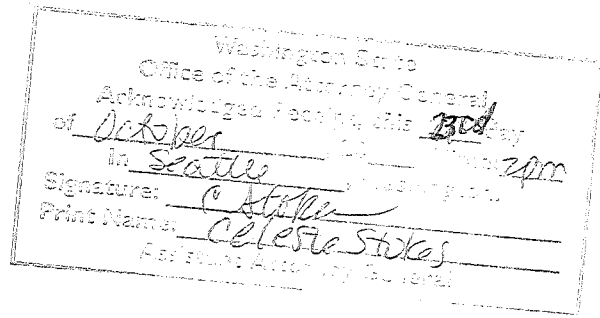 Washington State
Office of the Attorney General
Acknowledged receipt this 23rd day
of October, 20 2pm
in Seattle, Washington.
Signature: C Stokes
Print Name: Celeste Stokes
Assistant Attorney General